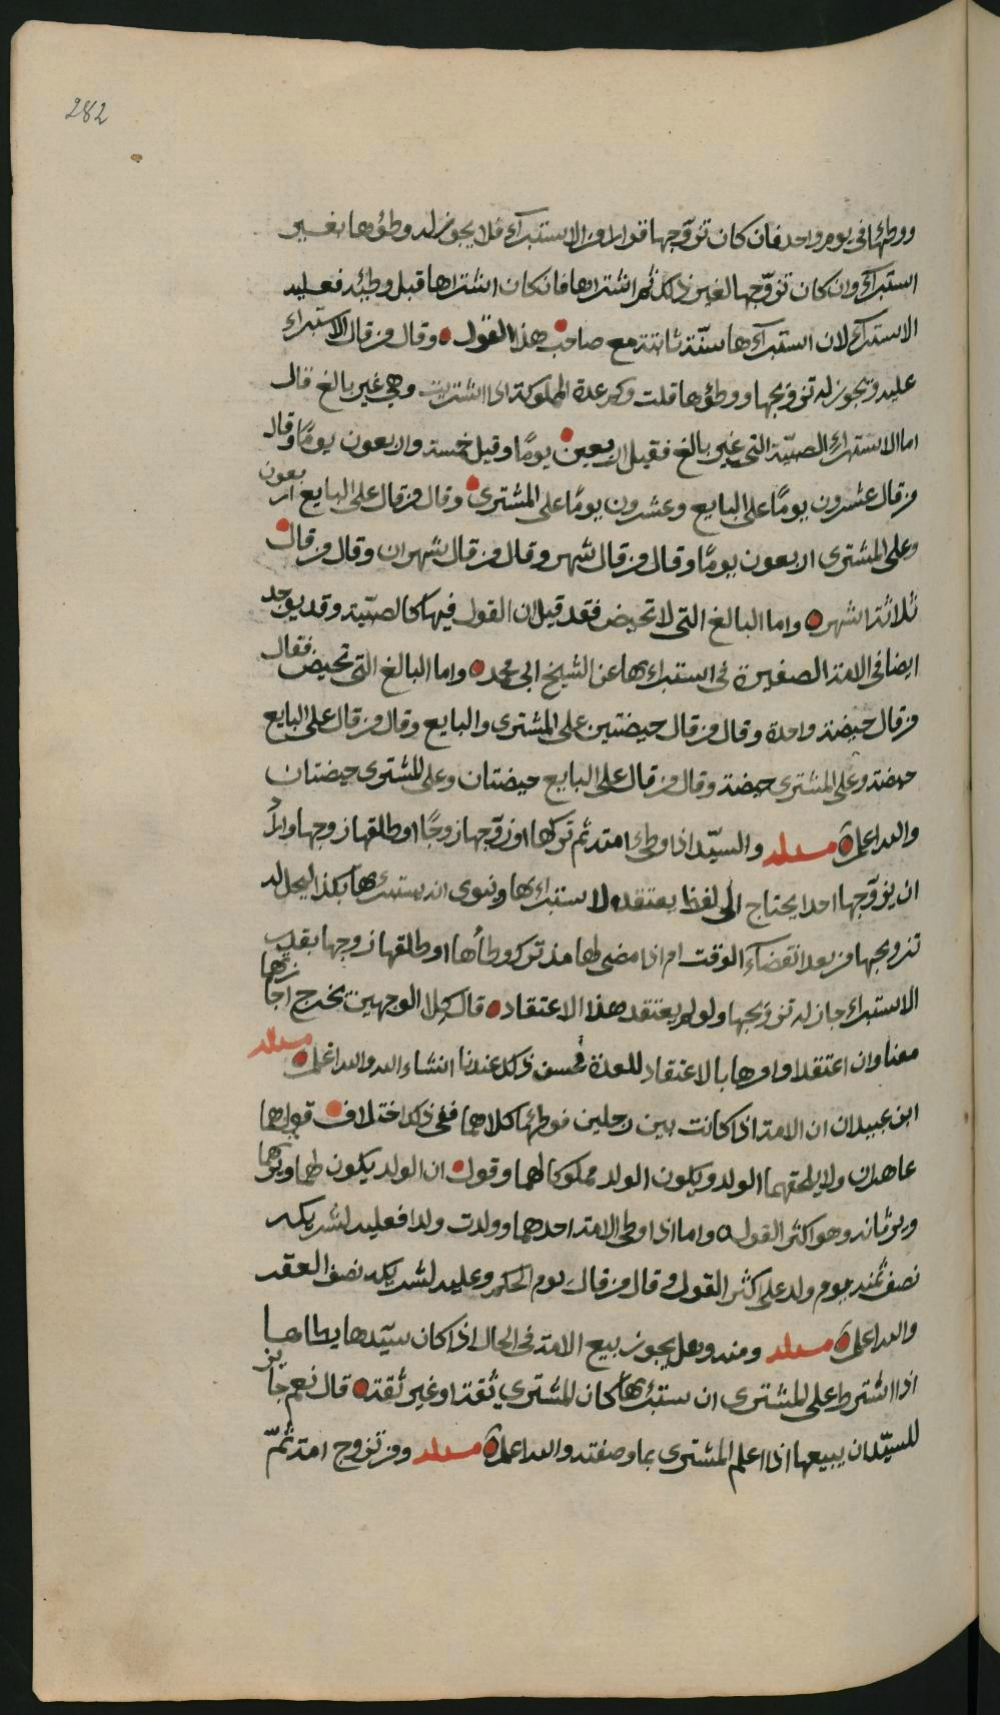 282
ووطئها في يوم واحد فان كان تزوجها فرارا من الاستبراء فلا يجوز له وطؤها بغير
استبراء وان كان تزوجها لغير ذلك ثم اشتراها فان كان اشتراها قبل وطئه فعليه
الاستبراء لان استبراءها سنة ثابتة مع صاحب هذا القول وقال من قال لا استبراء
عليه ويجوز له تزويجها ووطؤها قلت وكم عدة المملوكة اذا اشتريت وهي غير بالغ قال
اما الاستبراء الصبية التي غير بالغ فقيل اربعين يومًا وقيل خمسة واربعون يومًا وقال
من قال عشرون يومًا على البايع وعشرون يومًا على المشتري وقال من قال على البايع اربعون
وعلى المشتري اربعون يومًا وقال من قال شهر وقال من قال شهران وقال من قال
ثلاثة اشهر واما البالغ التي لا تحيض فقد قيل ان القول فيها كالصبية وقد يوجد
ايضا في الامة الصغيرة في استبراءها عن الشيخ ابي محمد واما البالغ التي تحيض فقال
من قال حيضة واحدة وقال من قال حيضتين على المشتري والبايع وقال من قال على البايع
حيضة وعلى المشتري حيضة وقال من قال على البايع حيضتان وعلى المشتري حيضتان
والله اعلم مسئلة والسيد اذا وطئ امته ثم تركها او زوجها زوجًا او طلقها زوجها واراد
ان يزوجها احدا يحتاج الى لفظ يعتقده لاستبراءها وينوي انه يستبرءها بكذا ليحل له
تزويجها من بعد انقضاء الوقت ام اذا مضى لها منذ ترك وطأها او طلقها زوجها بقدر
الاستبراء جاز له تزويجها ولو لم يعتقد هذا الاعتقاد قال كلا الوجهين يخرج اجازتهما
معنا وان اعتقد او امرها بالاعتقاد للعدة فحسن ذلك عندنا انشاء الله والله اعلم مسئلة
ابن عبيدان ان الامة اذا كانت بين رجلين فوطئها كلاهما ففي ذلك اختلاف قول هما
عاهران ولا يلحقهما الولد ويكون الولد مملوكا لهما وقول ان الولد يكون لهما ويرثهما
ويرثانه وهو اكثر القول واما اذا وطئ الامة احدهما وولدت ولدا فعليه لشريكه
نصف ثمنه يوم ولد على اكثر القول وقال من قال يوم الحكم وعليه لشريكه نصف العقر
والله اعلم مسئلة ومنه وهل يجوز بيع الامة في الحال اذا كان سيدها يطاها
اذا اشترط على المشتري ان ستبرئها كان المشتري ثقة او غير ثقة قال نعم جائز
للسيد ان يبيعها اذا اعلم المشتري بما وصفته والله اعلم مسئلة ومن تزوج امة ثم